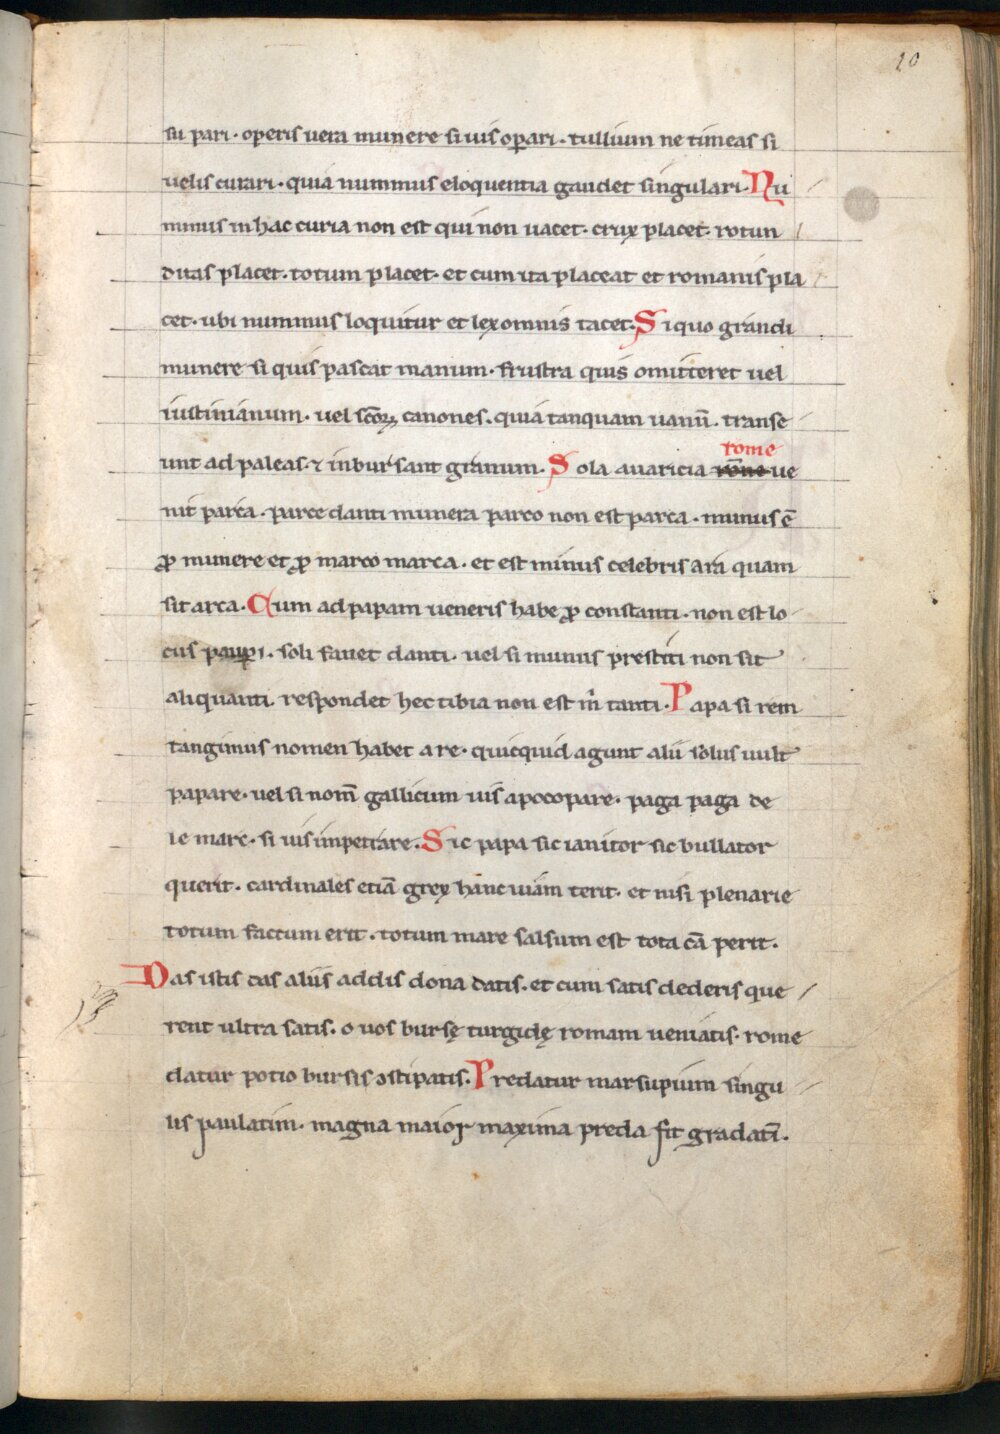 10
su pari · operis uera munere si uis oꝑari · tullium ne timeas si
uelis curari · quia nummus eloquentia gaudet singulari · Nu
mmus in hac curia non est qui non uacet · crux placet · rotun
ditas placet · totum placet · et cum ita placeat et romanis pla
cet · ubi nummus loquitur et lex omnis tacet · Si quo grandi
munere si quis pascat manum · frustra quis omitteret uel
iustinianum · uel sc̄oꝝ canones · quia tanquam uanū · transe
rome
unt ad paleas · ⁊ inbursant granum · Sola auaricia ue
nit parca · parce danti munera parco non est parca · munus ē
ꝓ munere et ꝓ marco marca · et est minus celebris ara quam
sit arca · Cum ad papam ueneris habe ꝓ constanti · non est lo
cus pauꝑi · soli fauet danti · uel si munus prestiti non sit
aliquanti respondet hec tibia non est m̄ tanti · Papa si rem
tangimus nomen habet a re · quicquid agunt alii solus uult
papare · uel si nom̄ gallicum uis apocopare · paga paga de
ie marc · si uis impetrare · Sic papa sic ianitor sic bullator
querit · cardinales etiā grex hanc uiam terit · et nisi plenarie
totum factum erit · totum mare salsum est tota cā perit ·
Das istis das aliis addis dona datis · et cum satis dederis que
rent ultra satis · o uos bursę turgidę romam ueniatis · rome
datur potio bursis ɔstipatis · Predatur marsupium singu
lis paulatim · magna maior maxima preda fit gradatī ·